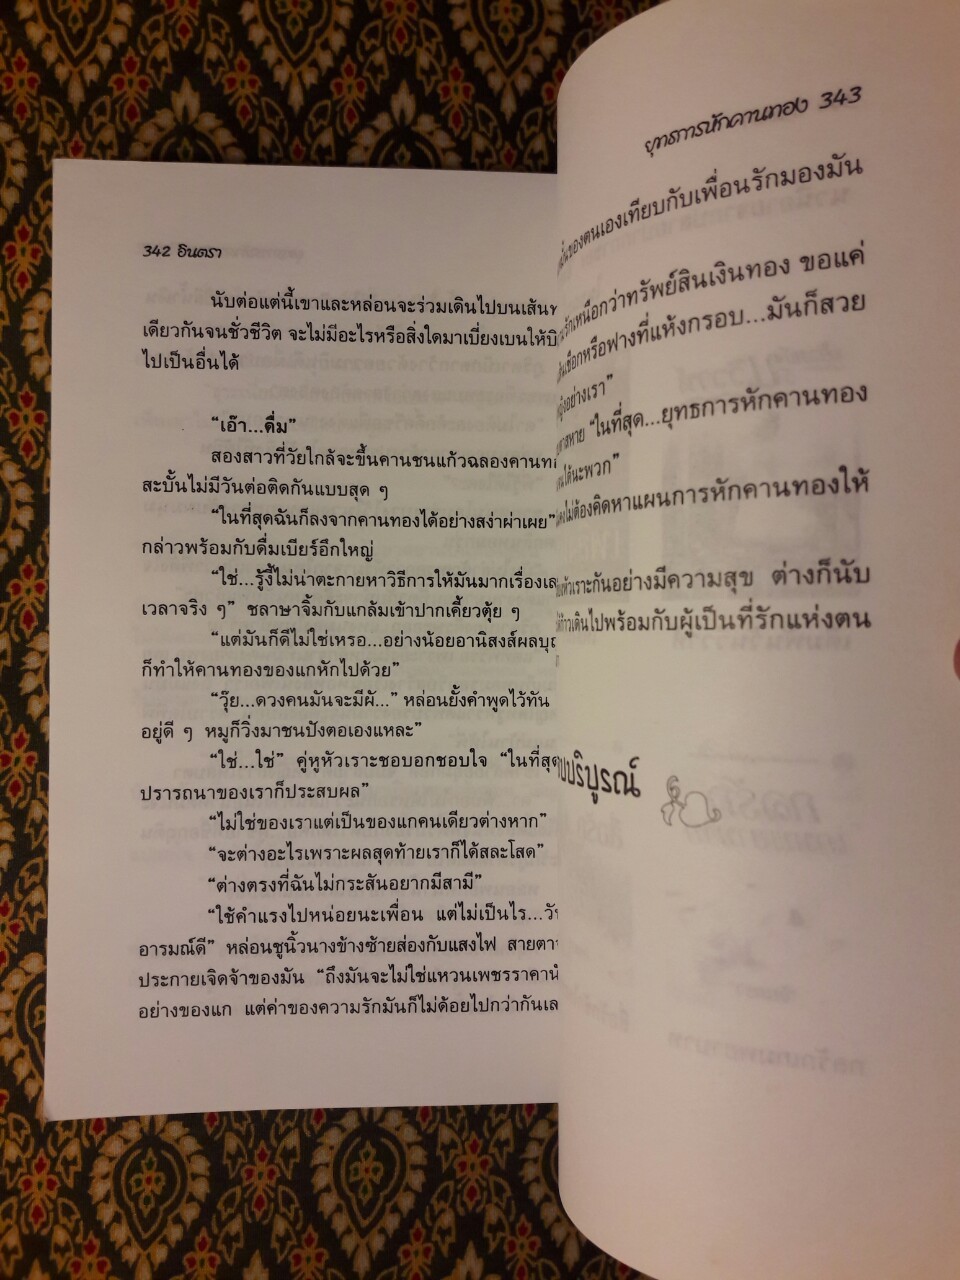 342 อินตรา
นับต่อแต่นี้เขาและหล่อนจะร่วมเดินไปบนเส้นท
เดียวกันจนชั่วชีวิต จะไม่มีอะไรหรือสิ่งใดมาเบี่ยงเบนให้
ไปเป็นอื่นได้
“เอ๊า...ดื่ม”
สองสาวที่วัยใกล้จะขึ้นคานชนแก้วฉลองคานท
สะบั้นไม่มีวันต่อติดกันแบบสุด ๆ
“ในที่สุดฉันก็ลงจากคานทองได้อย่างสง่าผ่าเผย”
กล่าวพร้อมกับดื่มเบียร์อึกใหญ่
“ใช่...รู้งี้ไม่น่าตะกายหาวิธีการให้มันมากเรื่องเส
เวลาจริง ๆ” ชลาษาจิ้มกับแกล้มเข้าปากเคี้ยวตุ้ย ๆ
“แต่มันก็ดีไม่ใช่เหรอ...อย่างน้อยอานิสงส์ผลบุญ
ก็ทำให้คานทองของแกหักไปด้วย”
“วุ๊ย...ดวงคนมันจะมีผั...” หล่อนยั้งคำพูดไว้ทัน
อยู่ดี ๆ หมูก็วิ่งมาชนปังตอเองแหละ”
“ใช่...ใช่” คู่หูหัวเราะชอบอกชอบใจ “ในที่สุด
ปรารถนาของเราก็ประสบผล”
“ไม่ใช่ของเราแต่เป็นของแกคนเดียวต่างหาก”
“จะต่างอะไรเพราะผลสุดท้ายเราก็ได้สละโสด”
“ต่างตรงที่ฉันไม่กระสันอยากมีสามี”
“ใช้คำแรงไปหน่อยนะเพื่อน แต่ไม่เป็นไร...วัน
อารมณ์ดี” หล่อนชูนิ้วนางข้างซ้ายส่องกับแสงไฟ สายตา
ประกายเจิดจ้าของมัน “ถึงมันจะไม่ใช่แหวนเพชรราคา
อย่างของแก แต่ค่าของความรักมันก็ไม่ด้อยไปกว่ากันเล
ยุทธการหักคานทอง 343
ของตนเองเทียบกับเพื่อนรักมองมัน
รักเหนือกว่าทรัพย์สินเงินทอง ขอแค่
เชือกหรือฟางที่แห้งกรอบ...มันก็สวย
อย่างเรา”
สหาย “ในที่สุด...ยุทธการหักคานทอง
ได้นะพวก”
ไม่ต้องคิดหาแผนการหักคานทองให้
หัวเราะกันอย่างมีความสุข ต่างก็นับ
ก้าวเดินไปพร้อมกับผู้เป็นที่รักแห่งตน
บบริบูรณ์